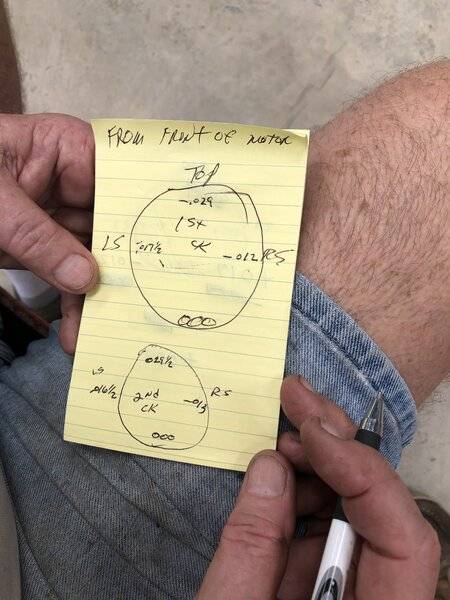 FROM FRONT OF MOTOR
TOP
-.029
1st
LS -.017½ CK -.012 RS
000
.029½
LS RS
.016½ 2Nd -.013
CK
000